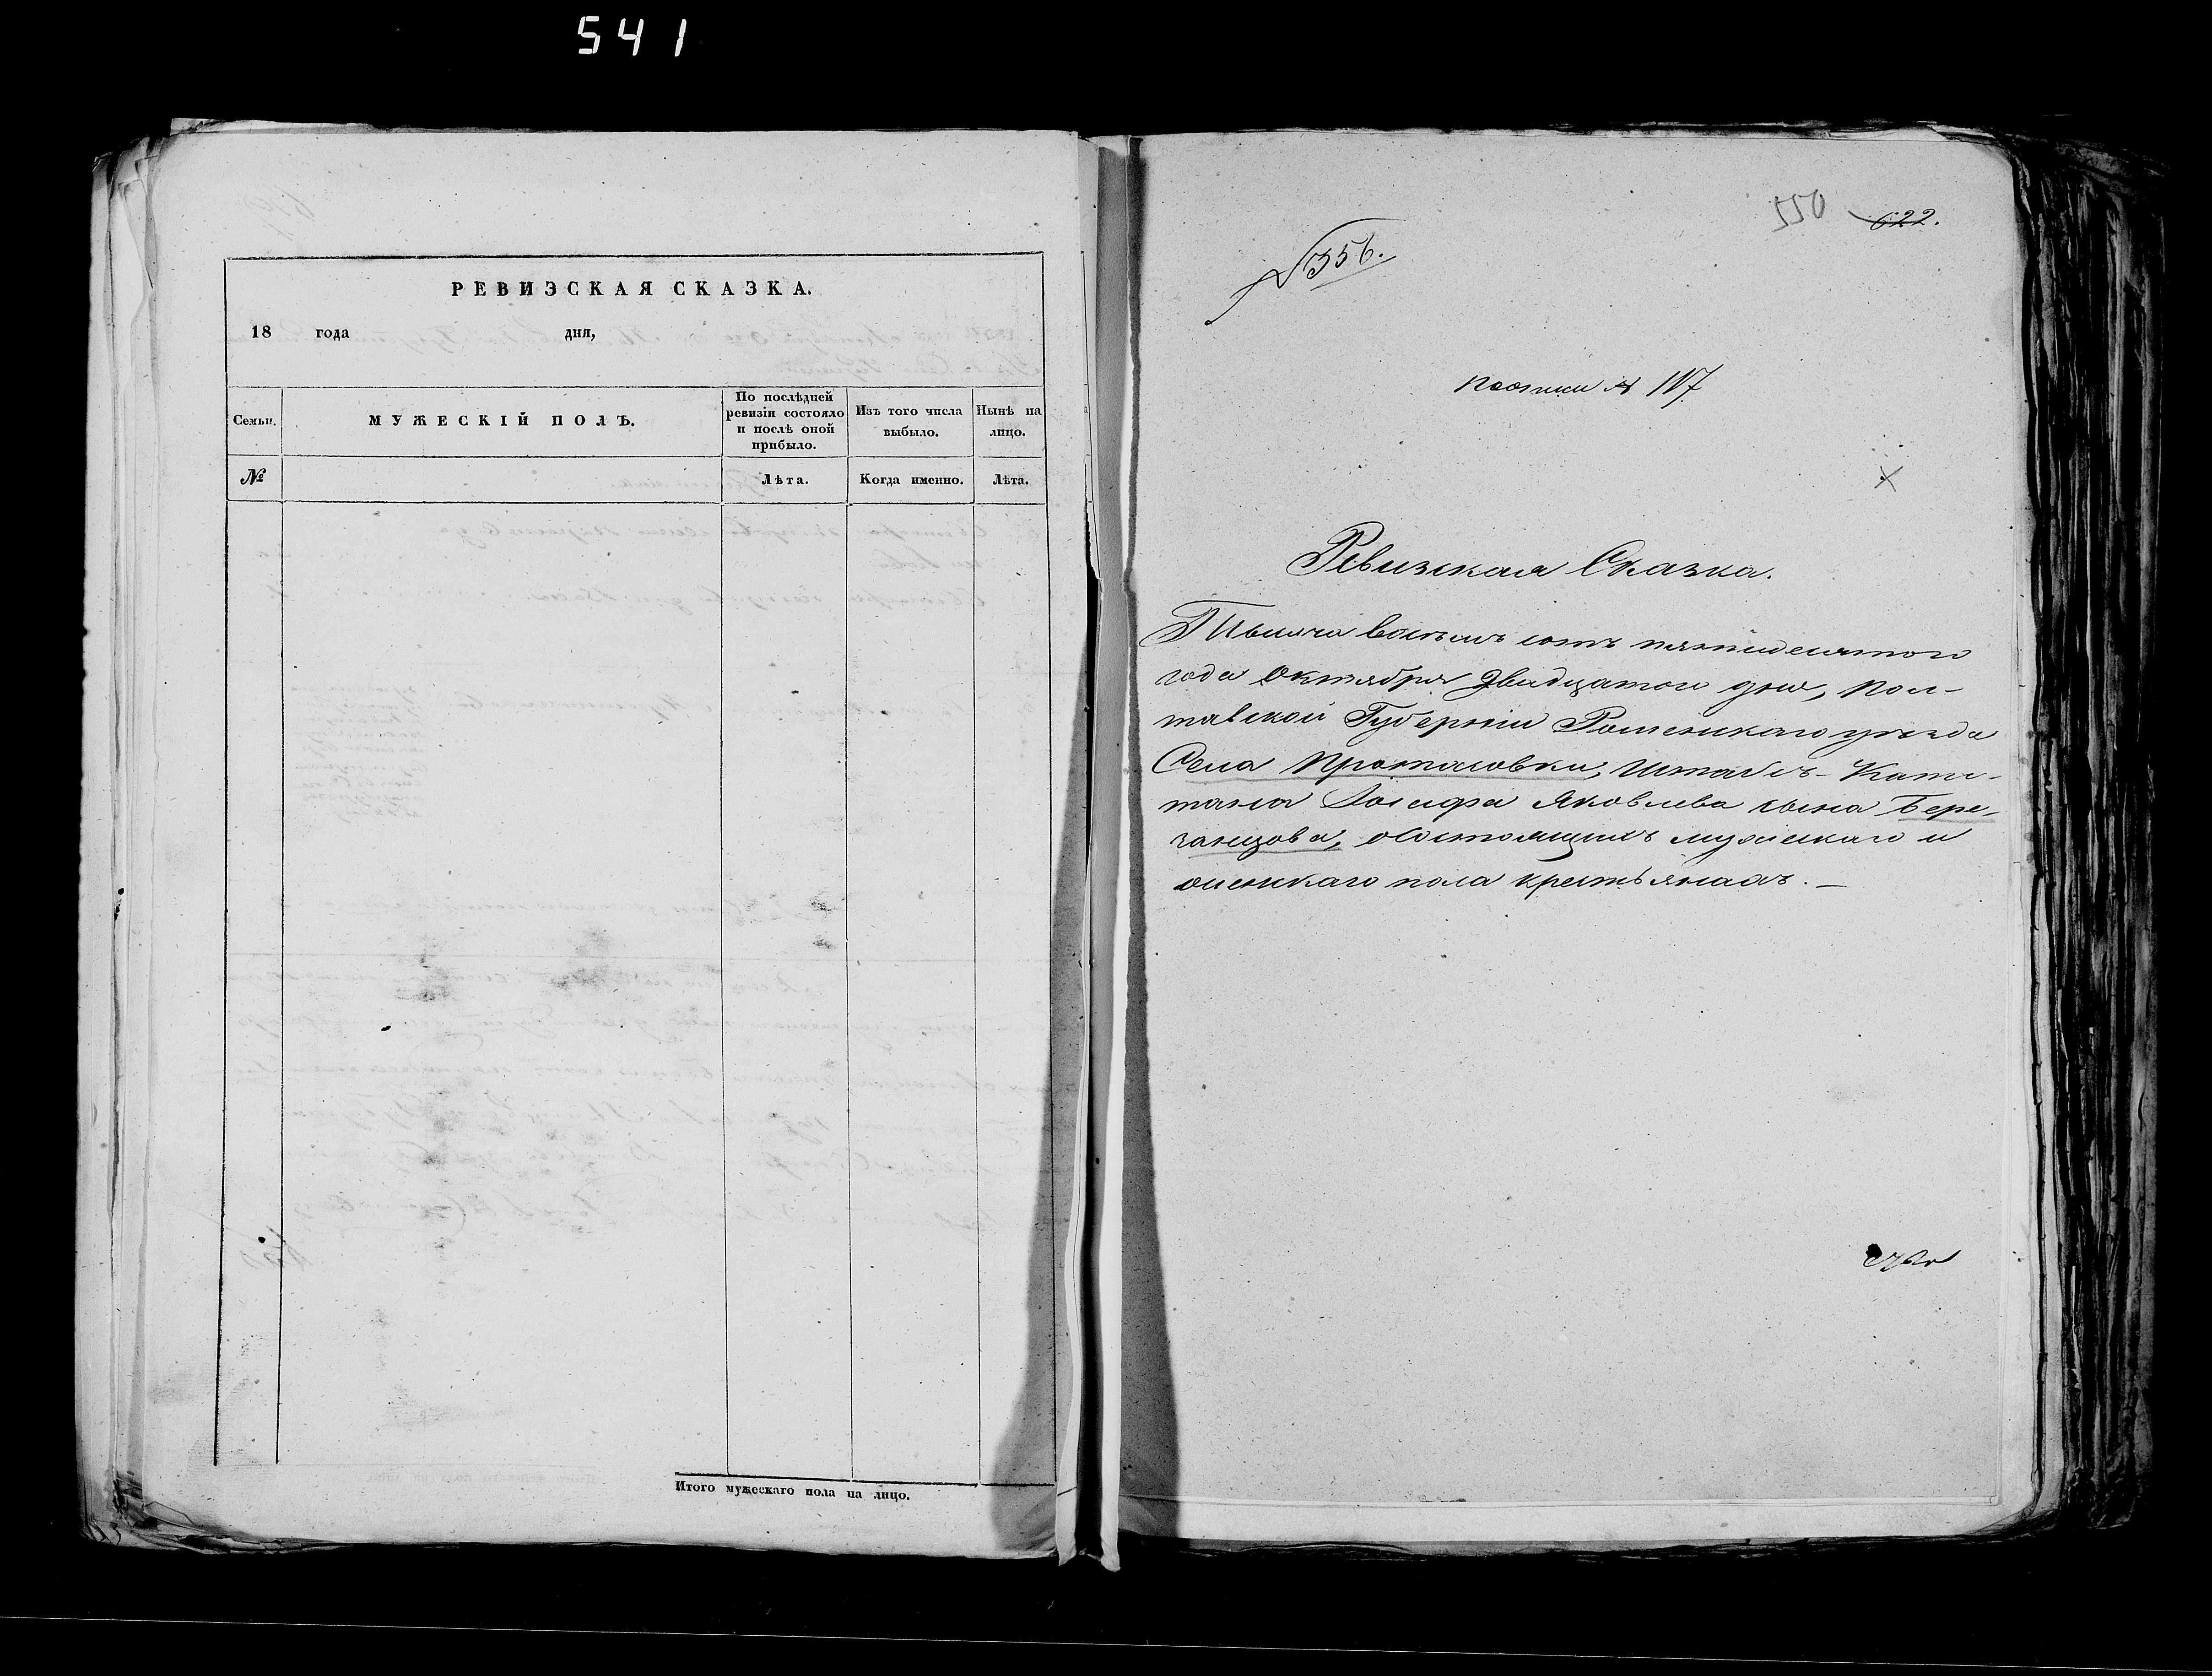 541
РЕВИЗСКАЯ СКАЗКА.
18 года дня,
Семьи.
МУЖЕСКІЙ ПОЛЪ.
По послѣдней ревизіи состояло и послѣ оной прибыло.
Изъ того числа выбыло.
Нынѣ на лицо.
№
Лѣта.
Когда именно.
Лѣта.
Итого мужескаго пола на лицо.
550 622.
№ 356.
№ 117
Ревизская Сказка.
Тысяча восемь сотъ пятидесятого
года Октября двадцатого дня, Пол-
тавской Губерніи Роменскаго уѣзда
Села Протасовки, Штабсъ-Капи-
тана Іосифа Яковлева сына Бере-
занцова, о состоящихъ мужескаго и
женскаго пола крестьянахъ. —